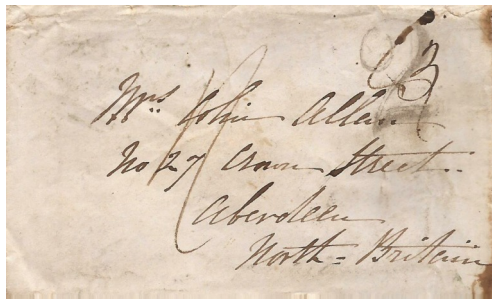 Mrs. Colin Allan
No 27 Crown Street.
Aberdeen
North = Britain